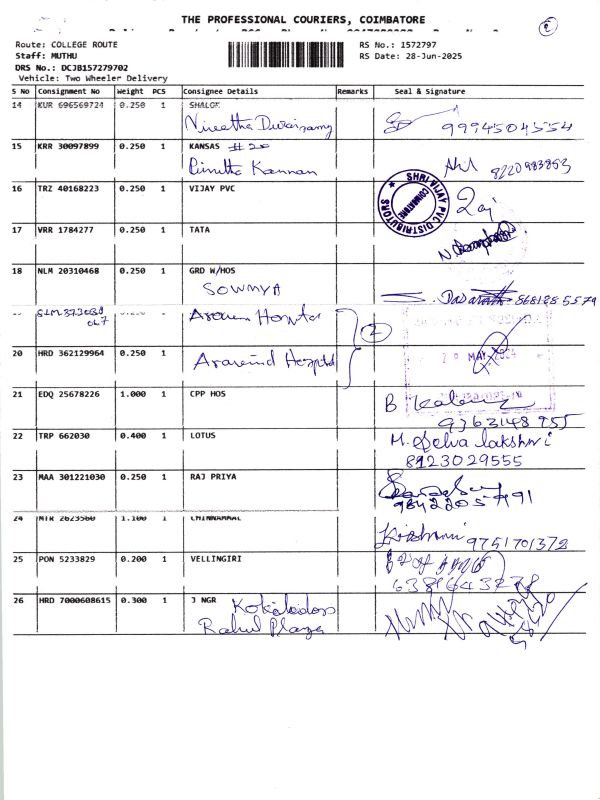 THE PROFESSIONAL COURIERS, COIMBATORE
2
Route: COLLEGE ROUTE
Staff: MUTHU
DRS No.: DCJB157279702
Vehicle: Two Wheeler Delivery
RS No.: 1572797
RS Date: 28-Jun-2025
S No Consignment No Weight PCS Consignee Details Remarks Seal & Signature
14 KUR 696569724 0.250 1 SHALOM
Nivetha Duraisamy 9994504554
15 KRR 30097899 0.250 1 KANSAS # 20
Punitha Kannan 9220983853
16 TRZ 40168223 0.250 1 VIJAY PVC
SHRI VIJAY PVC DISTRIBUTORS
COIMBATORE
17 VRR 1784277 0.250 1 TATA
18 NLM 20310468 0.250 1 GRD W/HOS
SOWMYA 8681285579
Aravind Hospital
2
20 HRD 362129964 0.250 1
Aravind Hospital
MAY 2024
21 EDQ 25678226 1.000 1 CPP HOS
9363148755
22 TRP 662030 0.400 1 LOTUS
M. Selva lakshmi
8123029555
23 MAA 301221030 0.250 1 RAJ PRIYA
24 MTR 2623560 1.100 1 CHINNAMMAL
9751701372
25 PON 5233829 0.200 1 VELLINGIRI
26 HRD 7000608615 0.300 1 J NGR
Rahul Plaza